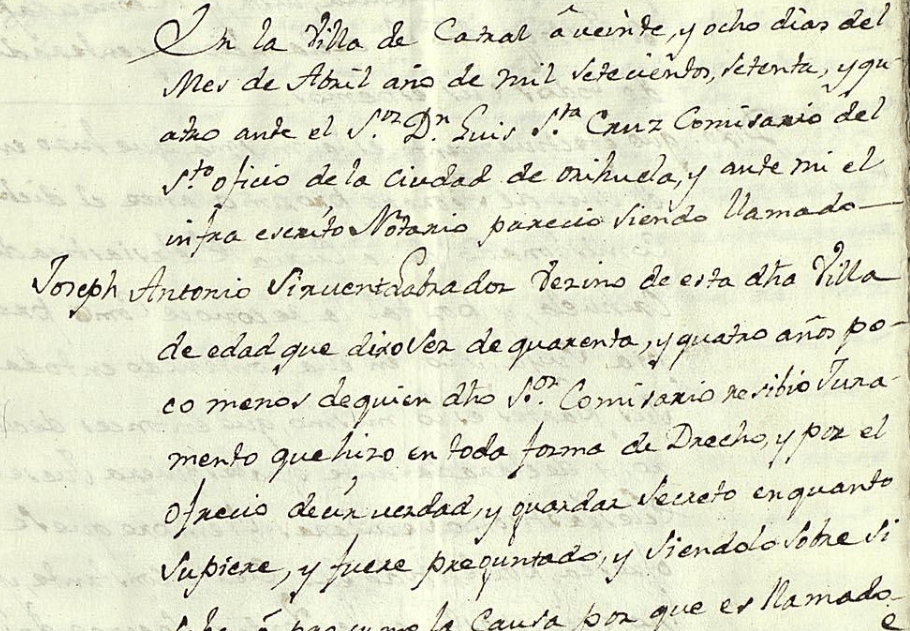 En la Villa de Catral â veinte, y ocho dias del
Mes de Abril año de mil setecientos, setenta, y qu-
atro ante el S.or D.n Luis S.ta Cruz Comisario del
S.to oficio de la Ciudad de orihuela, y ante mi el
infra escrito Notario parecio siendo llamado—
Joseph Antonio Sirvent Labrador vezino de esta dha Villa
de edad que dixo ser de quarenta, y quatro años po-
co menos de quien dho S.or Comisario resibio Jura-
mento que hizo en toda forma de Drecho, y por el
ofrecio decir verdad, y guardar secreto en quanto
supiere, y fuere preguntado, y siendolo sobre si
sabe, ô presume la Causa por que es llamado-
e